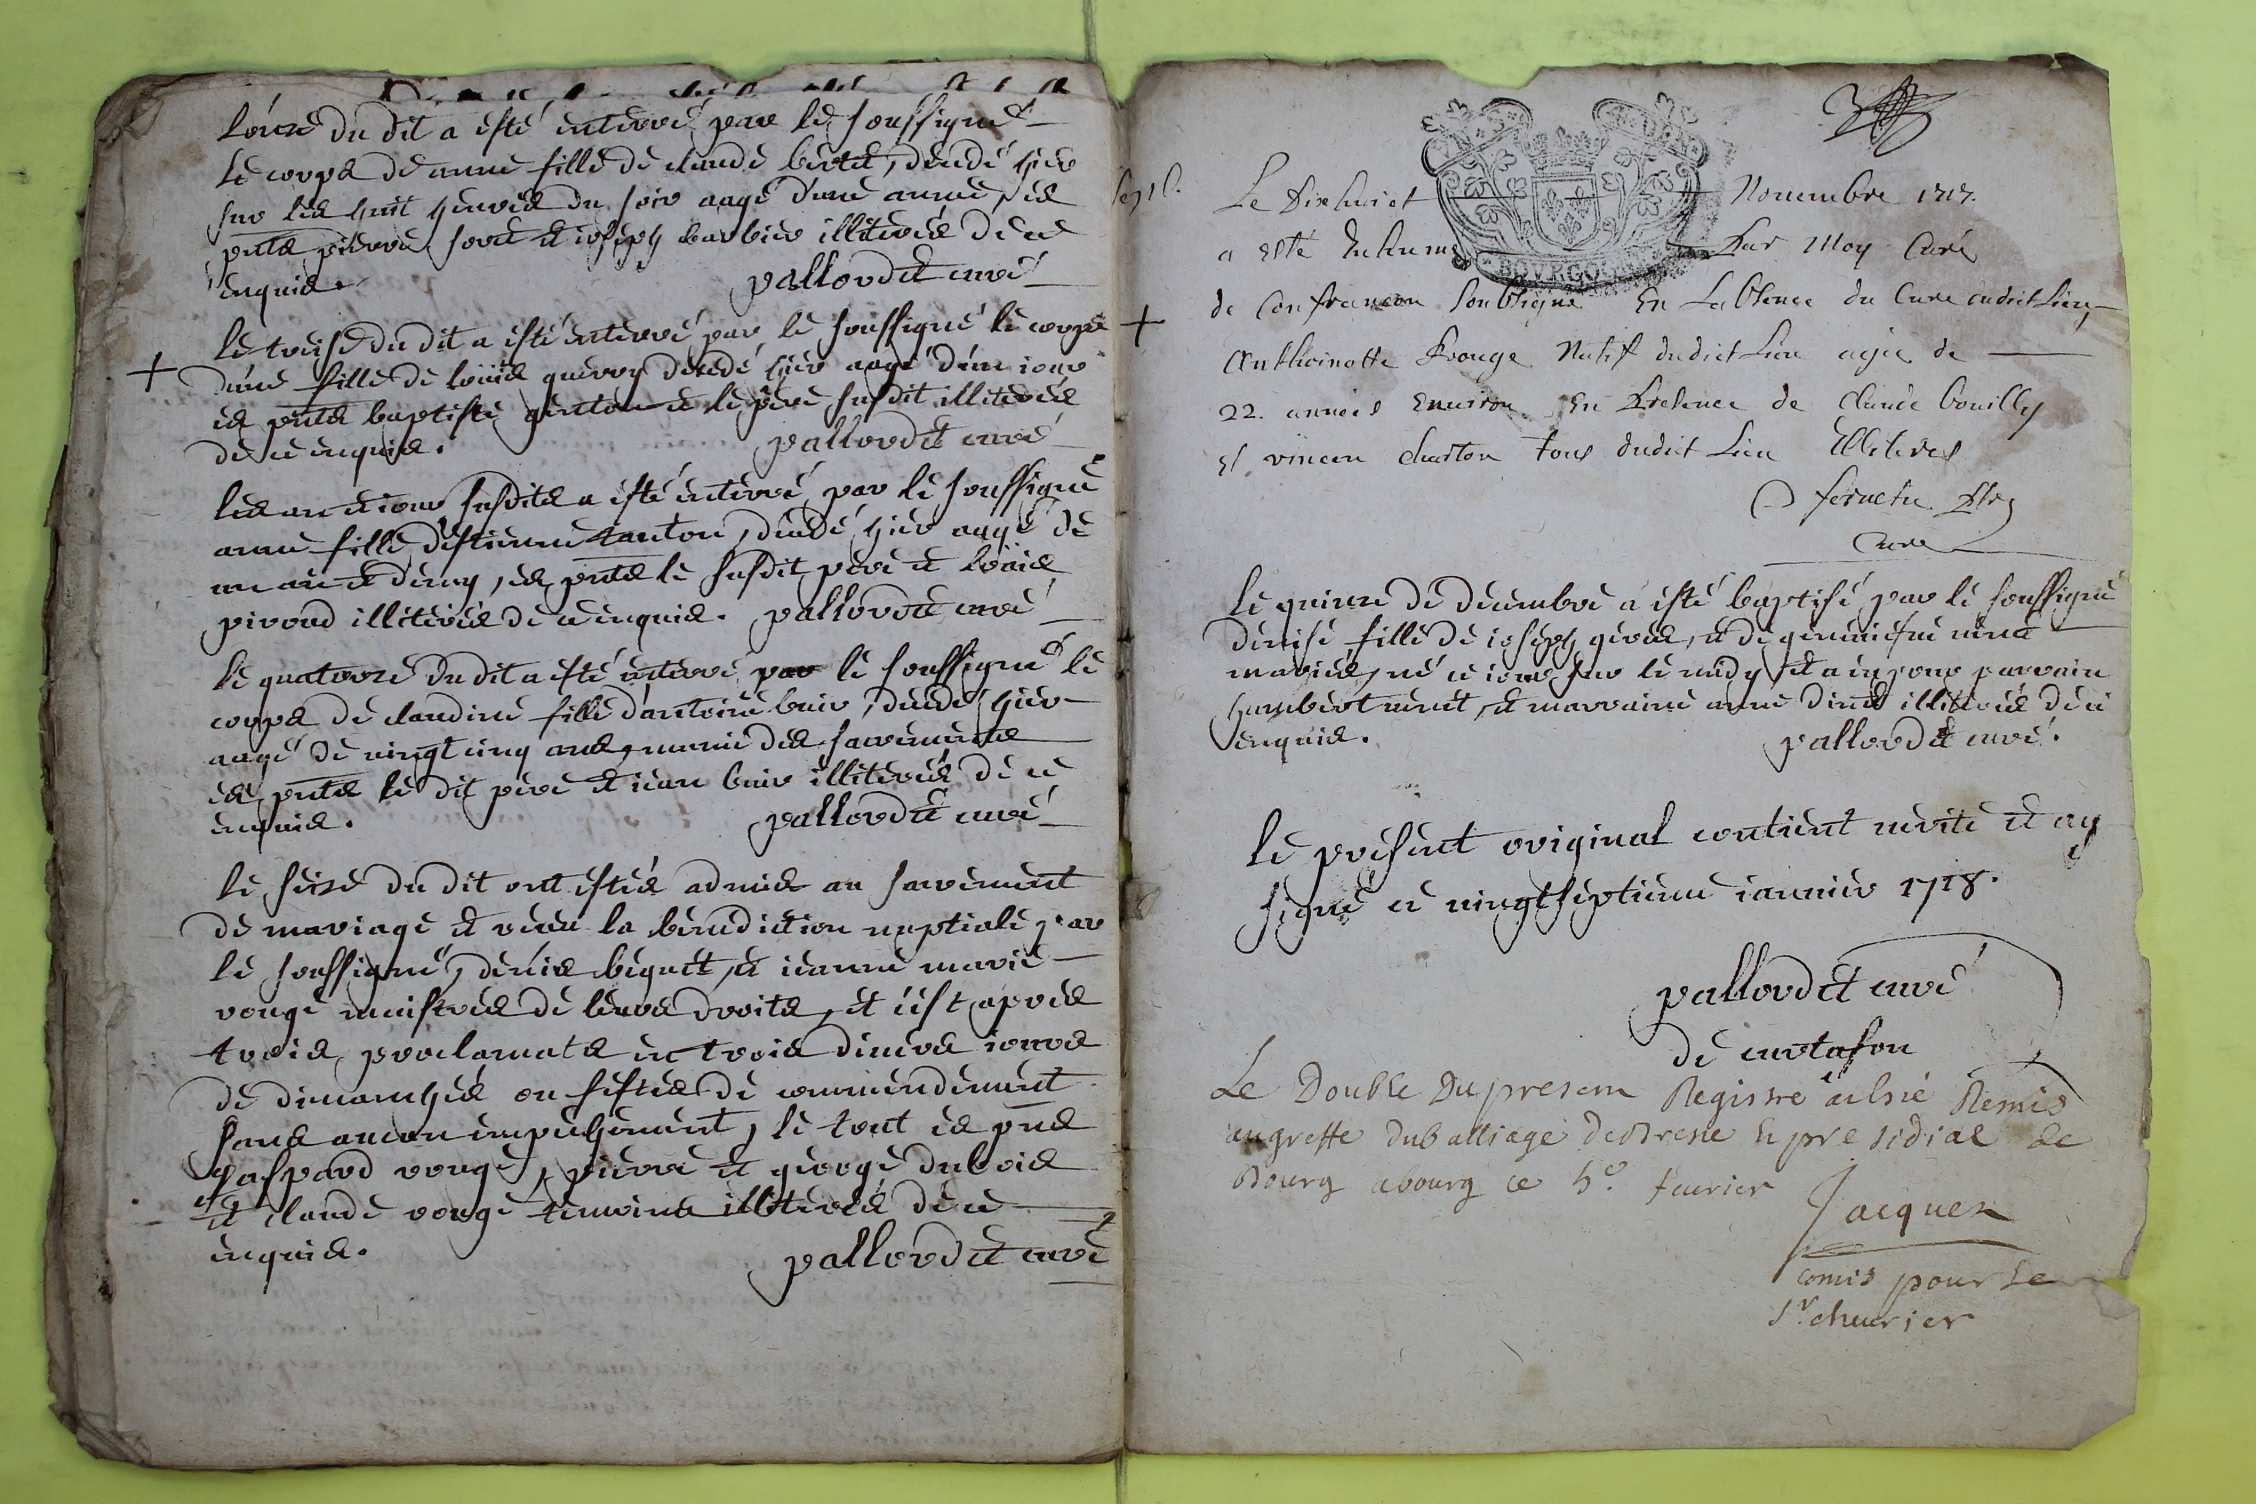 L'onze du dit a esté enterré par le soussigné
le corps de anne fille de claude , decedé hier
sur les huit heures du soir aagé d'une année, es
pnts pierre et joseph barbier illiterés de ce
enquis. pallordet curé
le treise du dit a esté enterré par le soussigné le corps
d'une fille de loüis guerry decedé hier aagé d'un iour
es pnts baptiste et le père susdit illiterés
de ce enquis. pallordet curé
les an et iour susdits a esté enterré par le soussigné
anne fille d'estienne , decedé hier aagé de
un an et demy, es pnts le susdit père et loüis
piroud illiterés de ce enquis. pallordet curé
le quatorze du dit a esté enterré par le soussigné le
corps de claudine fille d'antoine buir, decedé hier
aagé de vingt cinq ans, munie des sacrements
es pnts le dit père et iean buir illiterés de ce
enquis. pallordet curé
le seize du dit ont estés admis au sacrement
de mariage et receu la benediction nuptiale par
le soussigné, denis bequet, et ieanne marie
rouge maistres de leurs droits, et c'est après
trois proclamats en trois divers iours
de dimanches ou festes de commendement
sans aucun empechement, le tout es pns
gaspard rouge, pierre et george dubois
et claude rouge temoins illiterés de ce
enquis. pallordet curé
Le Dixhuict Nouembre 1717.
a esté Inhumé Par Moy Curé
de Confrancon Soubsigné En Labsence du Curé dudict Lieu,
Anthoinette Rouge Natif dudict Lieu agée de
22. années Enuiron En Presence de Claude bouilly
Et vincen charton tous dudict Lieu Illiteres
Ptre
Curé
le quinze de decembre a esté baptisé par le soussigné
denise fille de ioseph , et de geneuiefue
mariés, né ce iour sur le midy et a eu pour parrain
humbert , et marraine anne illiterés de ce
enquis. pallordet curé.
BOVRGO
le present original contient verité et ay
signé ce vingtseptieme ianvier 1718.
pallordet curé
de curtafon
Le Double Du presem Registre a esté Remis
au greffe du balliage de Bresse Et presidial de
Bourg a bourg ce 5e. feurier
Jacquet
comis pour Le
Sr. cheurier